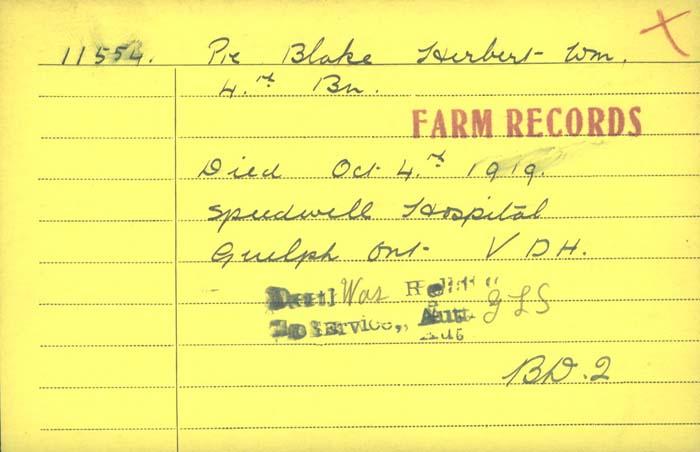 11554. Pte Blake Herbert Wm.
4.th Bn.
FARM RECORDS
Died Oct 4.th 1919.
Speedwell Hospital
Guelph Ont V D H.
Death Was Related
To Service, Auth GLS
B.D. 2